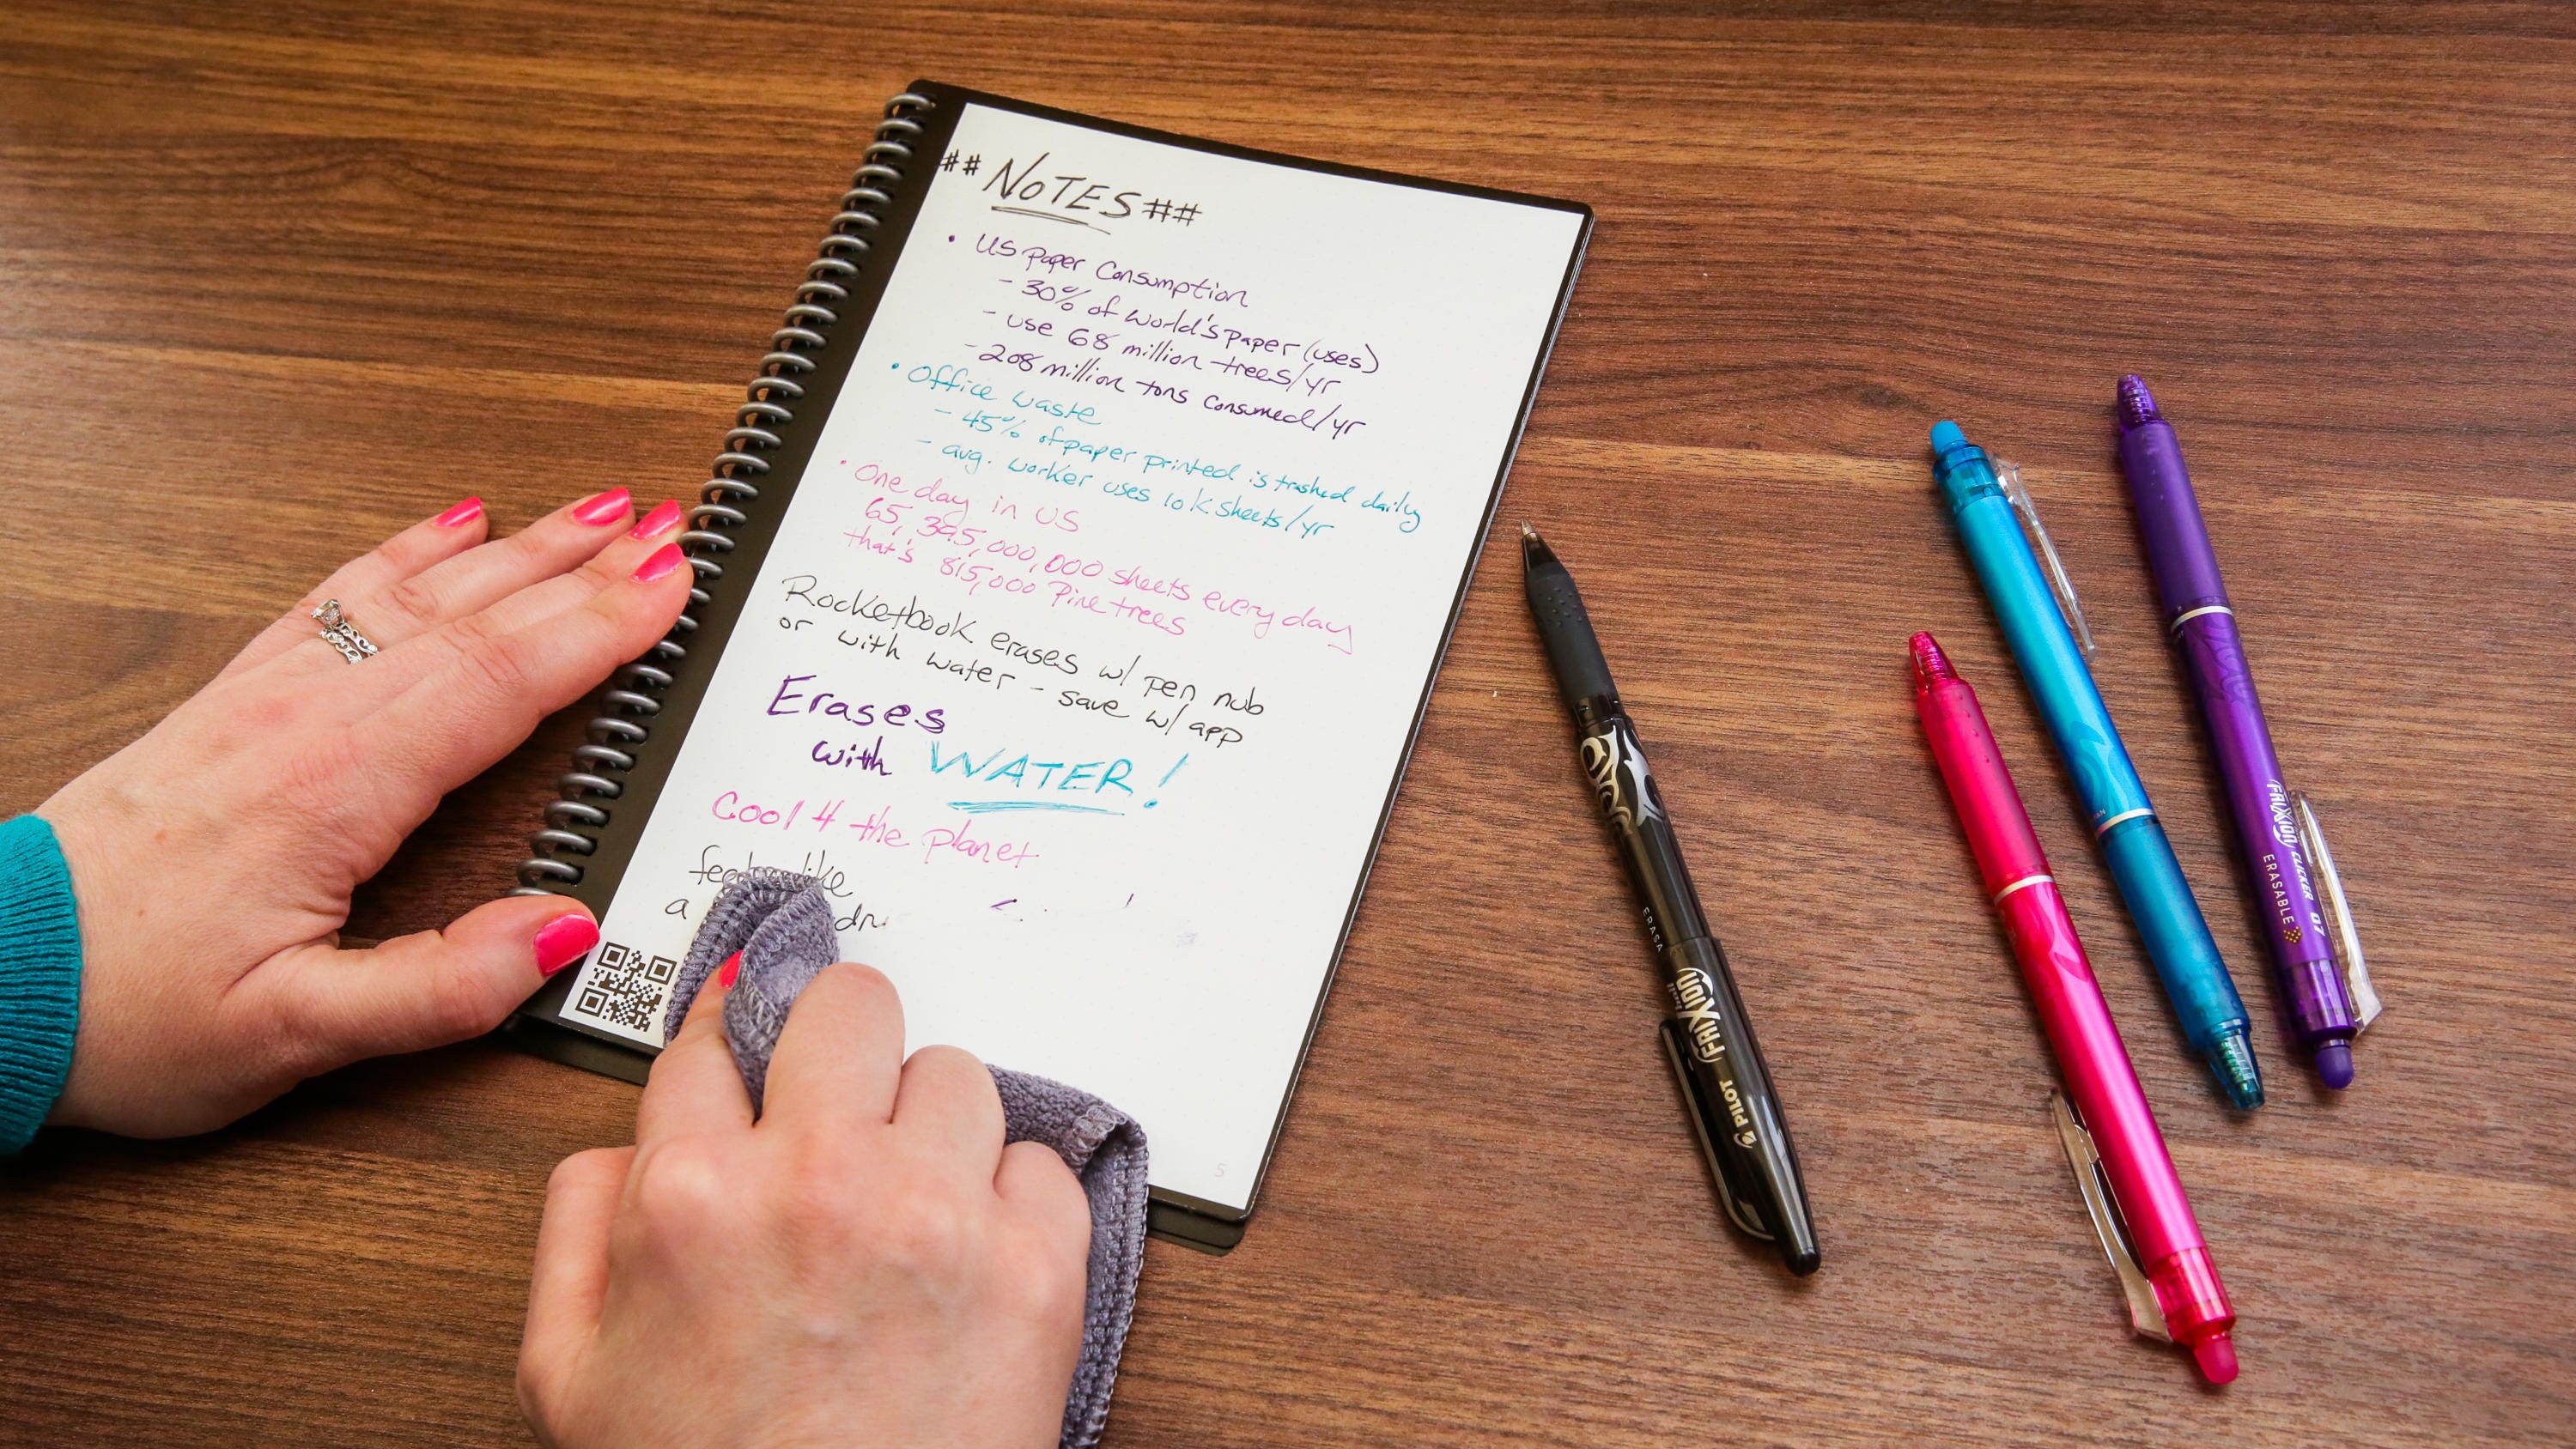 ## NOTES ##
• US Paper Consumption
- 30% of world's paper (uses)
- use 68 million trees/yr
- 208 million tons consumed/yr
• Office waste
- 45% of paper printed is trashed daily
- avg. worker uses 10K sheets/yr
• One day in US
65,395,000,000 sheets every day
that's 815,000 Pine trees
Rocketbook erases w/ pen nub
or with water - save w/ app
Erases
with WATER!
Cool 4 the planet
like
a
5
ERASA
FRIXION ball
PILOT
FRIXION CLICKER 07
ERASABLE